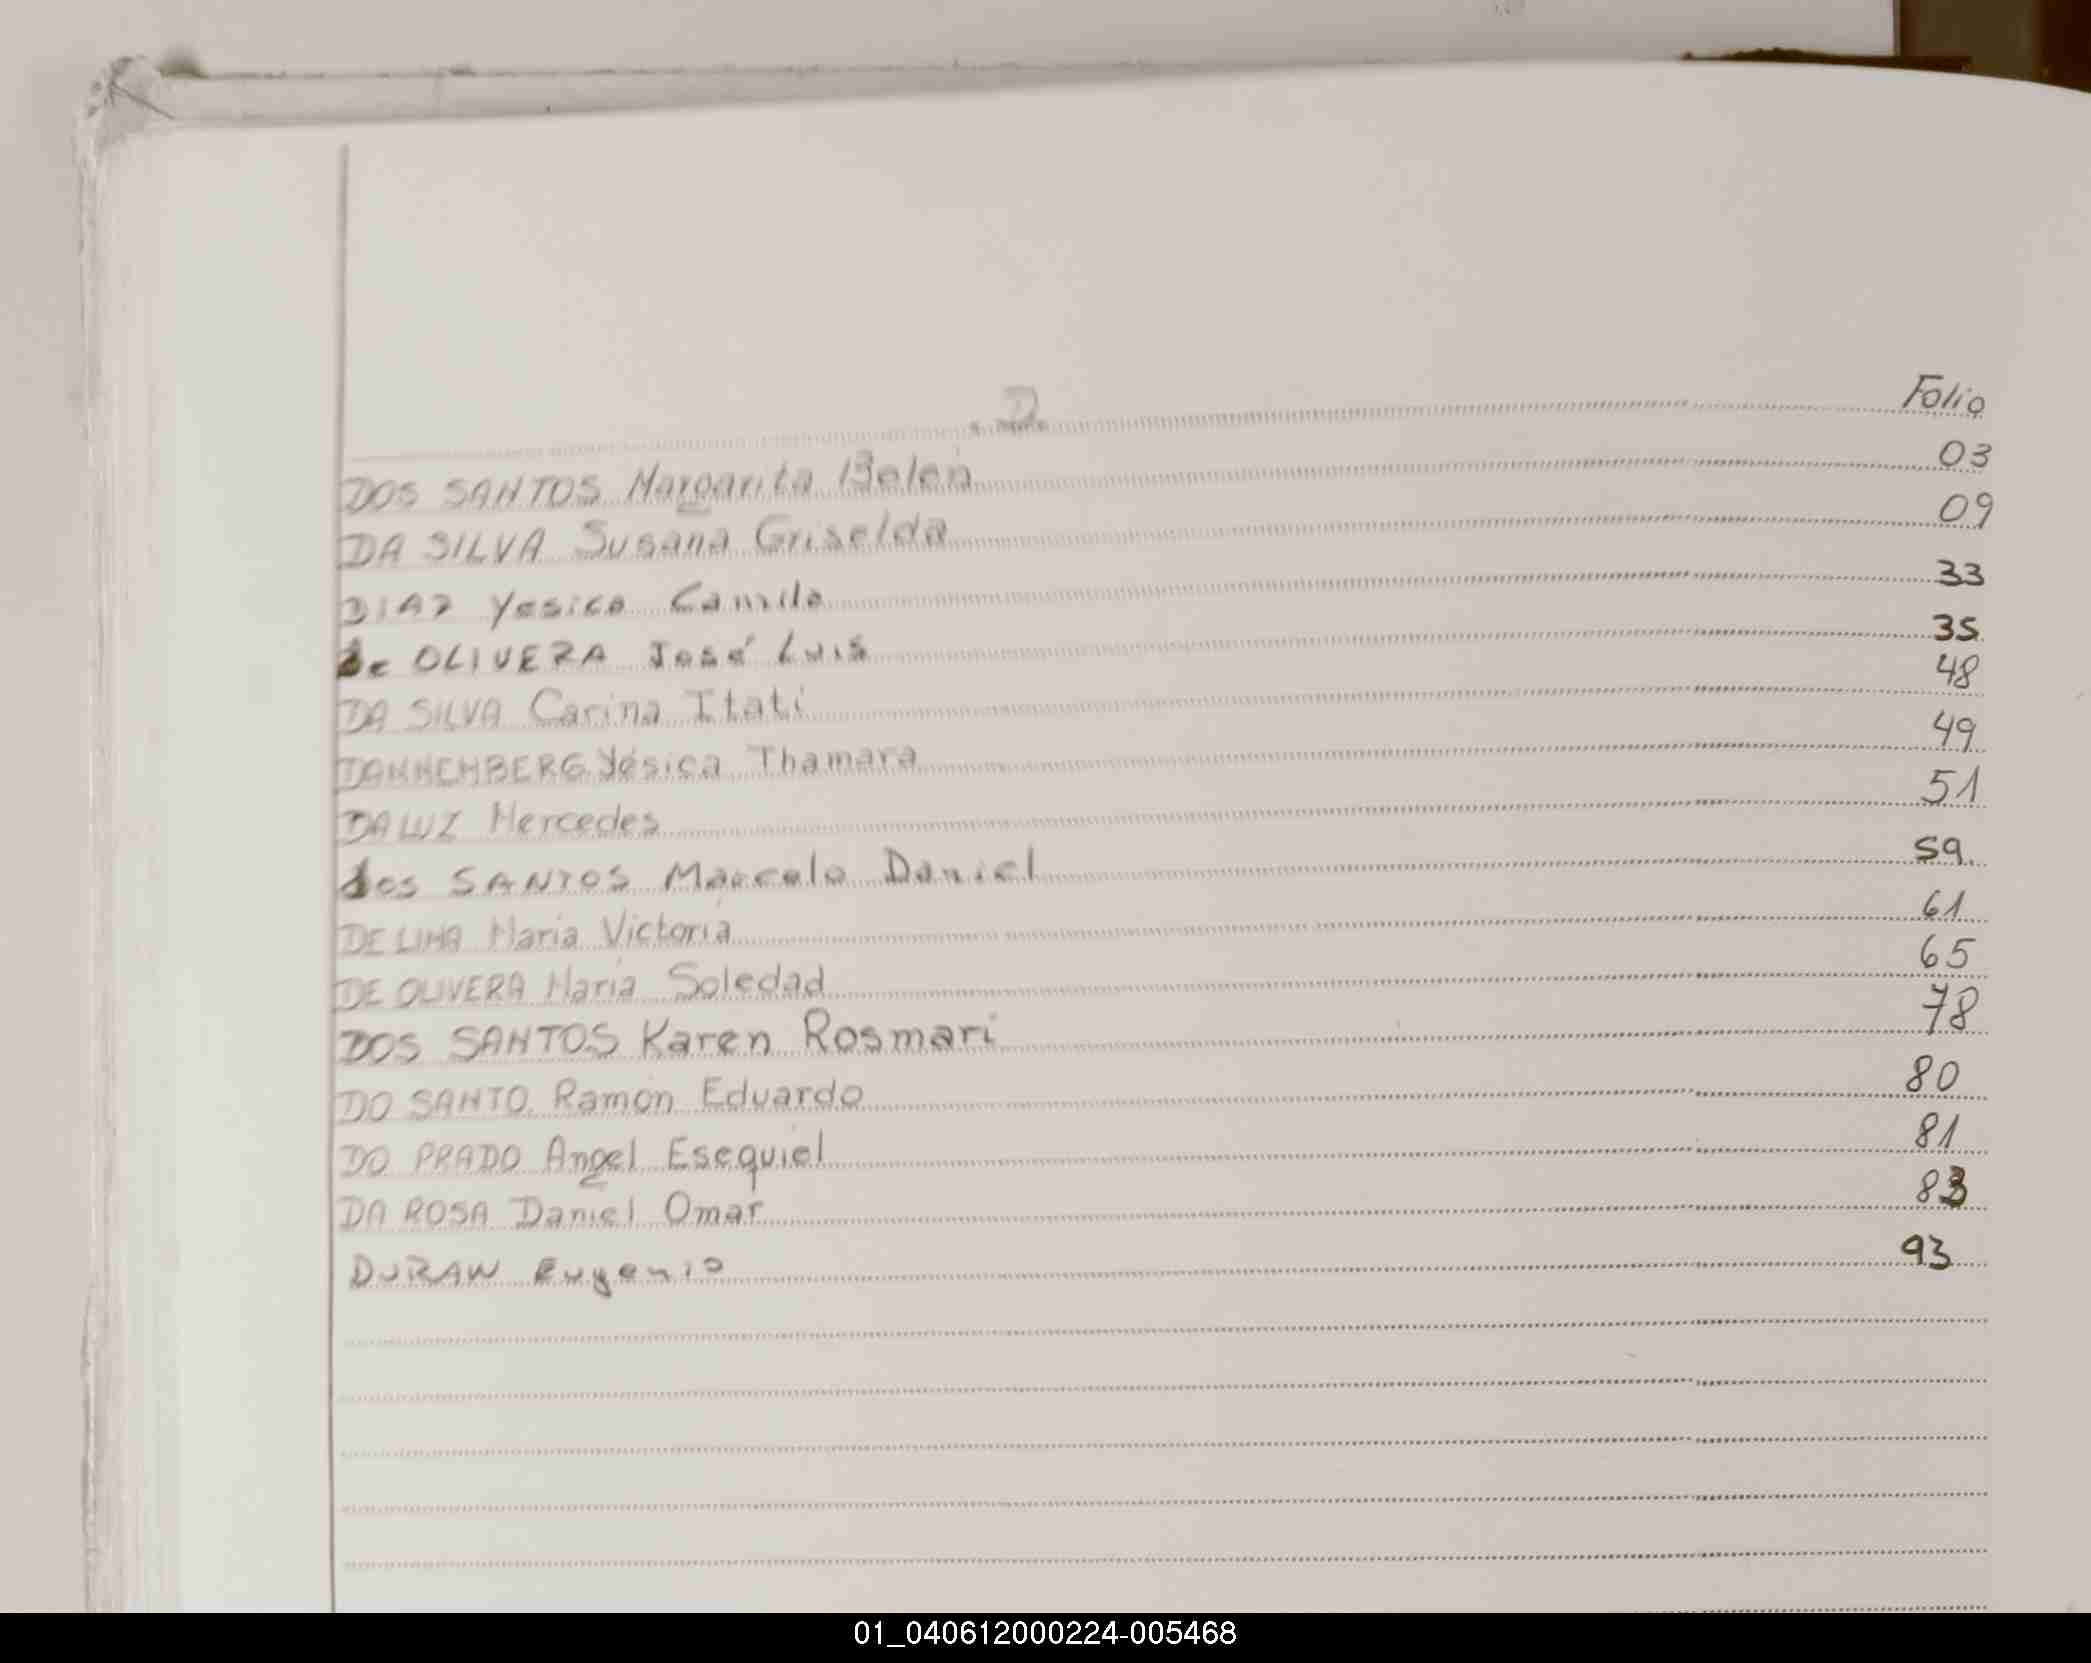 D Folio
DOS SANTOS Margarita Belén 03
DA SILVA Susana Griselda 09
DIAZ Yesica Camila 33
de OLIVERA José Luis 35
DA SILVA Carina Itatí 48
DANNEMBERG Yésica Thamara 49
DA LUZ Mercedes 51
dos SANTOS Marcelo Daniel 59
DE LIMA María Victoria 61
DE OLIVERA María Soledad 65
DOS SANTOS Karen Rosmari 78
DO SANTO Ramón Eduardo 80
DO PRADO Angel Esequiel 81
DA ROSA Daniel Omar 83
DURAN Eugenio 93
01_040612000224-005468